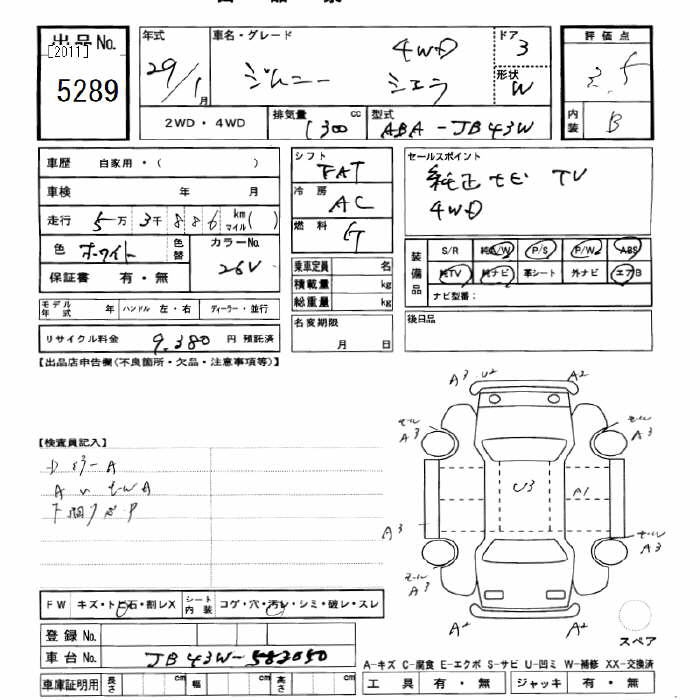 出品No.
[2011]
5289
年式
29/1月
車名・グレード
4WD
ジムニー シエラ
ドア
3
形状
W
評価点
3.5
内装
B
2WD・4WD
排気量
1300 cc
型式
ABA-JB43W
車歴 自家用・( )
車検 年 月
走行 5万3千886 km マイル( )
色 ホワイト 色替
カラーNo. 26V
保証書 有・無
シフト FAT
冷房 AC
燃料 G
乗車定員 名
積載量 kg
総重量 kg
セールスポイント
純正ナビ TV
4WD
装備品
S/R 純A/W P/S P/W ABS
純TV 純ナビ 革シート 外ナビ エアB
ナビ型番:
モデル年式 年 ハンドル 左・右 ディーラー・並行
名変期限
月 日
後日品
リサイクル料金 9,380 円 預託済
【出品店申告欄(不良箇所・欠品・注意事項等)】
A3 U2 A2
モール A3
モール A3
【検査員記入】
U3 A1
A3
モール A3
モール A3
A2 A2
FW キズ・トビ石・割レX
シート内装 コゲ・穴・汚レ・シミ・破レ・スレ
登録No.
車台No. JB43W-582050
スペア
A-キズ C-腐食 E-エクボ S-サビ U-凹ミ W-補修 XX-交換済
車庫証明用 長さ cm 幅 cm 高さ cm
工具 有・無 ジャッキ 有・無